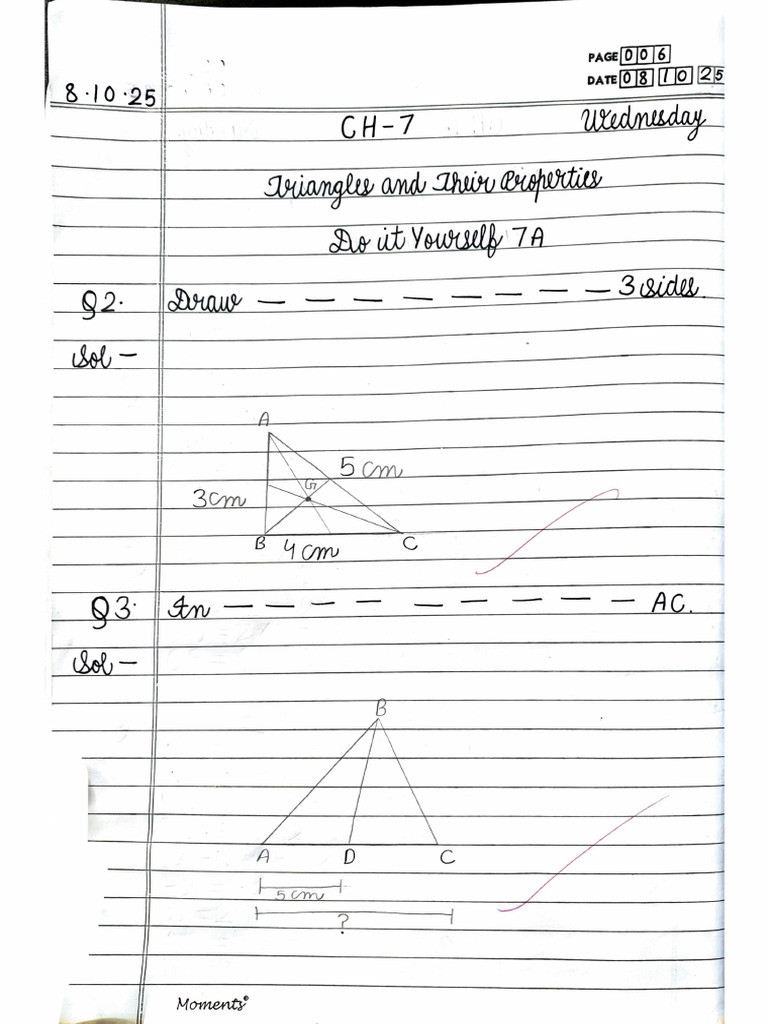 PAGE 006
DATE 08 10 25
8.10.25
CH-7 Wednesday
Triangles and Their Properties
Do it Yourself 7A
Q2. Draw — — — — — — — — 3 sides.
Sol —
A
5 cm
G
3cm
B 4 cm C
Q3. In — — — — — — — — — AC.
Sol —
B
A D C
5 cm
?
Moments